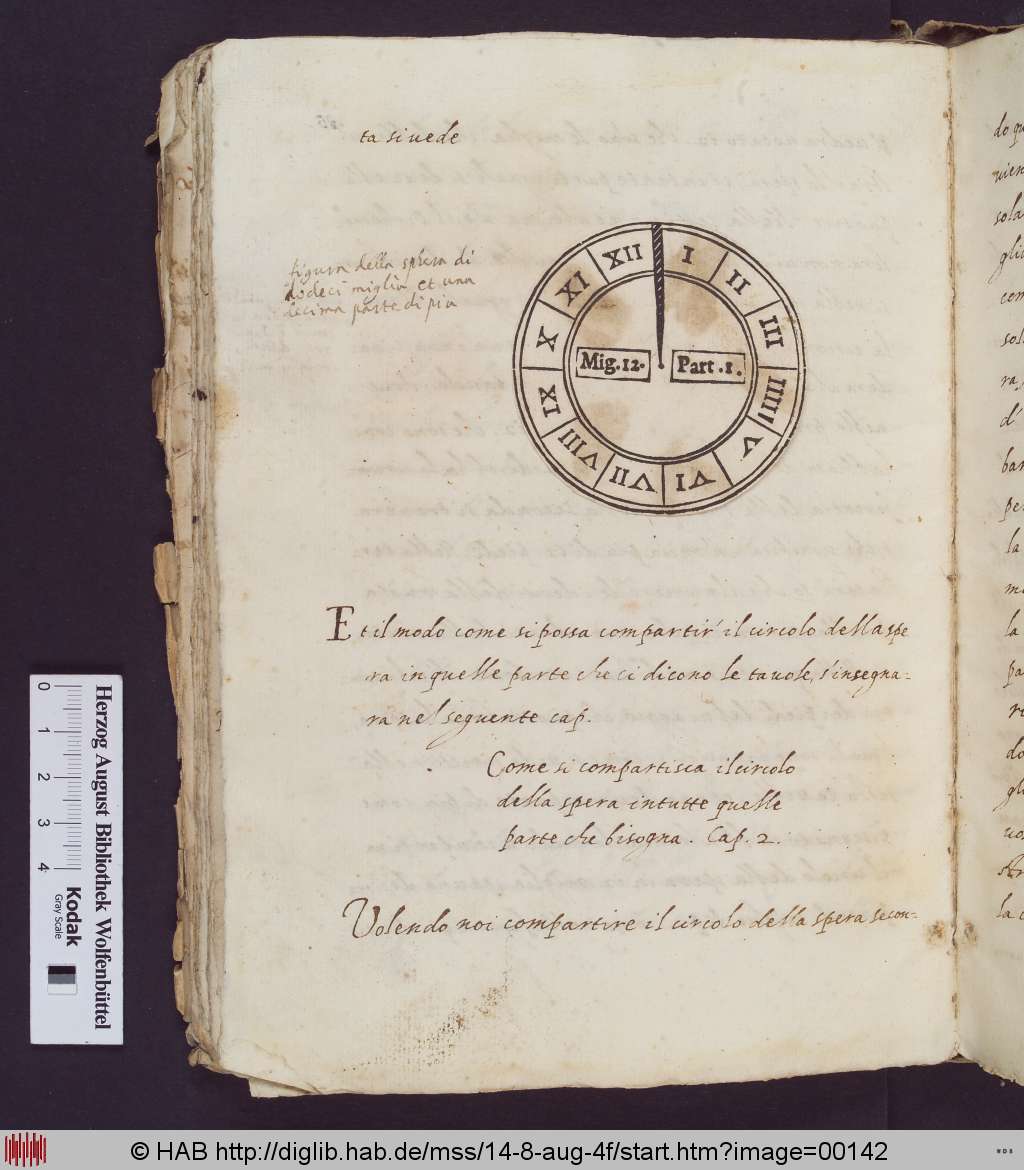 ta si vede
figura della sphera di
dodeci miglia et una
decima parte di piu
XII I II III IIII V VI VII VIII IX X XI
Mig.12. Part.1.
Et il modo come si possa compartir' il circolo della spe
ra in quelle parte che ci dicono le tavole, s'insegna-
ra nel seguente cap.
Come si compartisca il circolo
della spera in tutte quelle
parte che bisogna. Cap. 2.
Volendo noi compartire il circolo della spera secon-
do qu
vien
sola
gli
com
sol
ra
d'
bar
per
la
la
pa
do
gli
la
Herzog August Bibliothek Wolfenbüttel
0 1 2 3 4
Kodak
Gray Scale
© HAB http://diglib.hab.de/mss/14-8-aug-4f/start.htm?image=00142
WDB